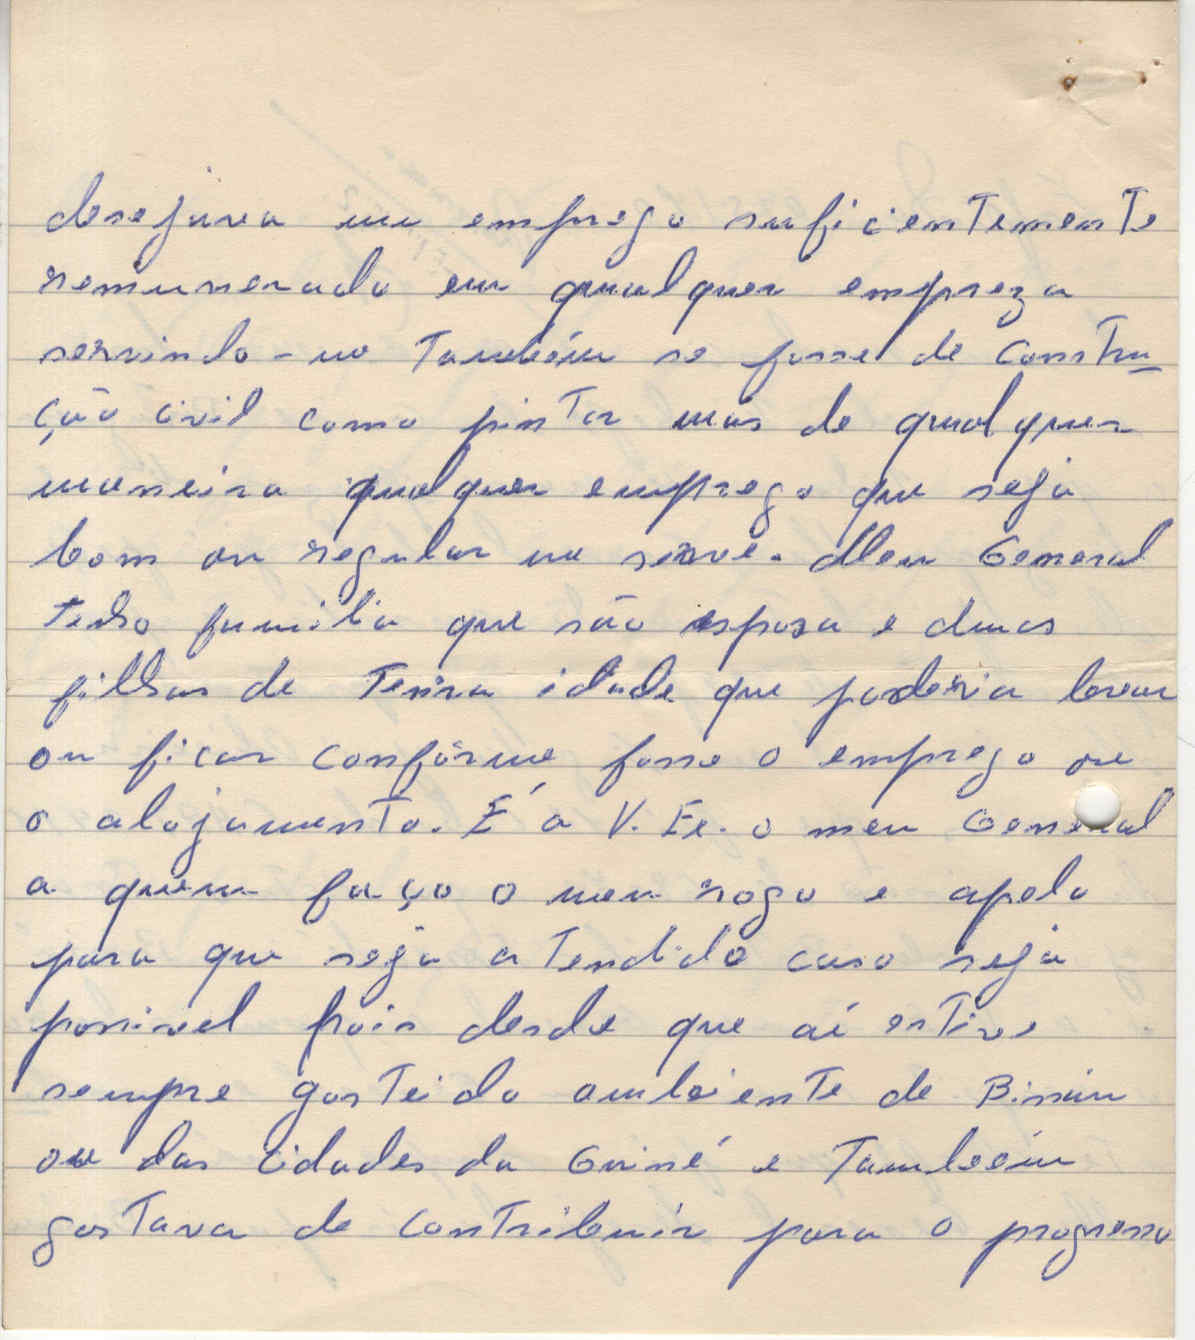 desejava um emprego suficientemente
remunerado em qualquer empreza
servindo-me também se fosse de constru-
ção civil como pintor mas de qualquer
maneira qualquer emprego que seja
bom ou regular me serve. Meu General
tenho familia que são esposa e duas
filhas de tenra idade que poderia levar
ou ficar confórme fosse o emprego ou
o alojamento. É a V. Ex. o meu General
a quem faço o meu rogo e apelo
para que seja atendido caso seja
possivel pois desde que aí estive
sempre gostei do ambiente de Bissau
ou das cidades da Guiné e também
gostava de contribuir para o progresso